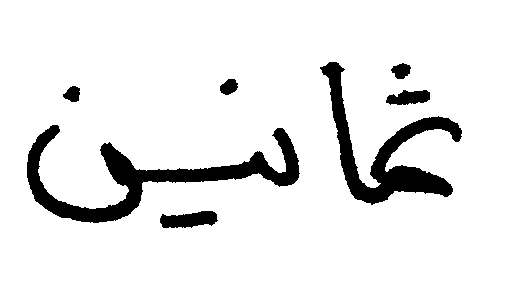 ثمانين